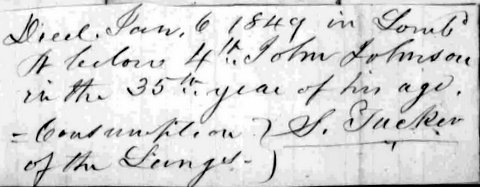 Died. Jan. 6 1849 in Lombd
St below 4th. John Johnson
in the 35th. year of his age.
= Consumption } S. Tucker
of the Lungs - }